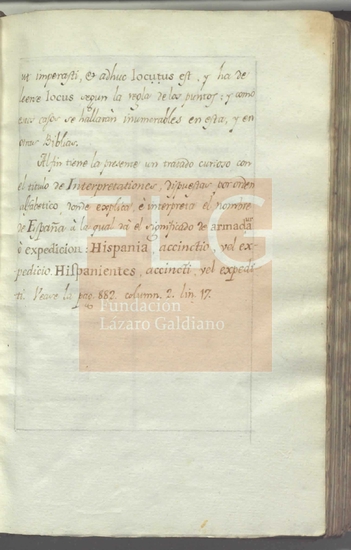 ut imperasti, & adhuc locutus est, y ha de
leerse locus segun la regla de los puntos: y como
estos casos se hallaràn inumerables en esta, y en
otras Biblias.
Al fin tiene la presente un tratado curioso con
el titulo de Interpretationes, dispuestas por orden
alfabetico, donde explica, è interpreta el nombre
de España à la qual dà el significado de armada
ò expedicion: Hispania, accinctio, vel ex-
pedicio. Hispanientes, accincti, vel expedi-
ti. Vease la pag. 882. column. 2. lin. 17.
FLG
Fundación
Lázaro Galdiano